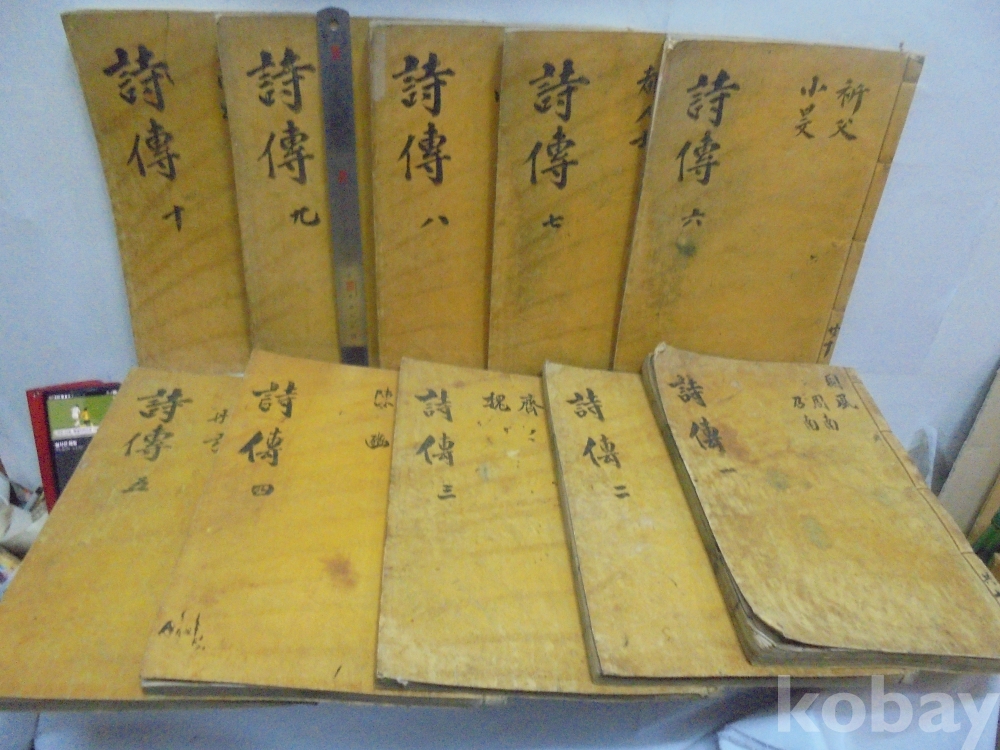 詩傳 十
詩傳 九
詩傳 八
詩傳 七
詩傳 六
祈父
小旻
詩傳 五
詩傳 四
陳
豳
詩傳 三
齊
魏
詩傳 二
詩傳 一
國風
周南
召南
kobay